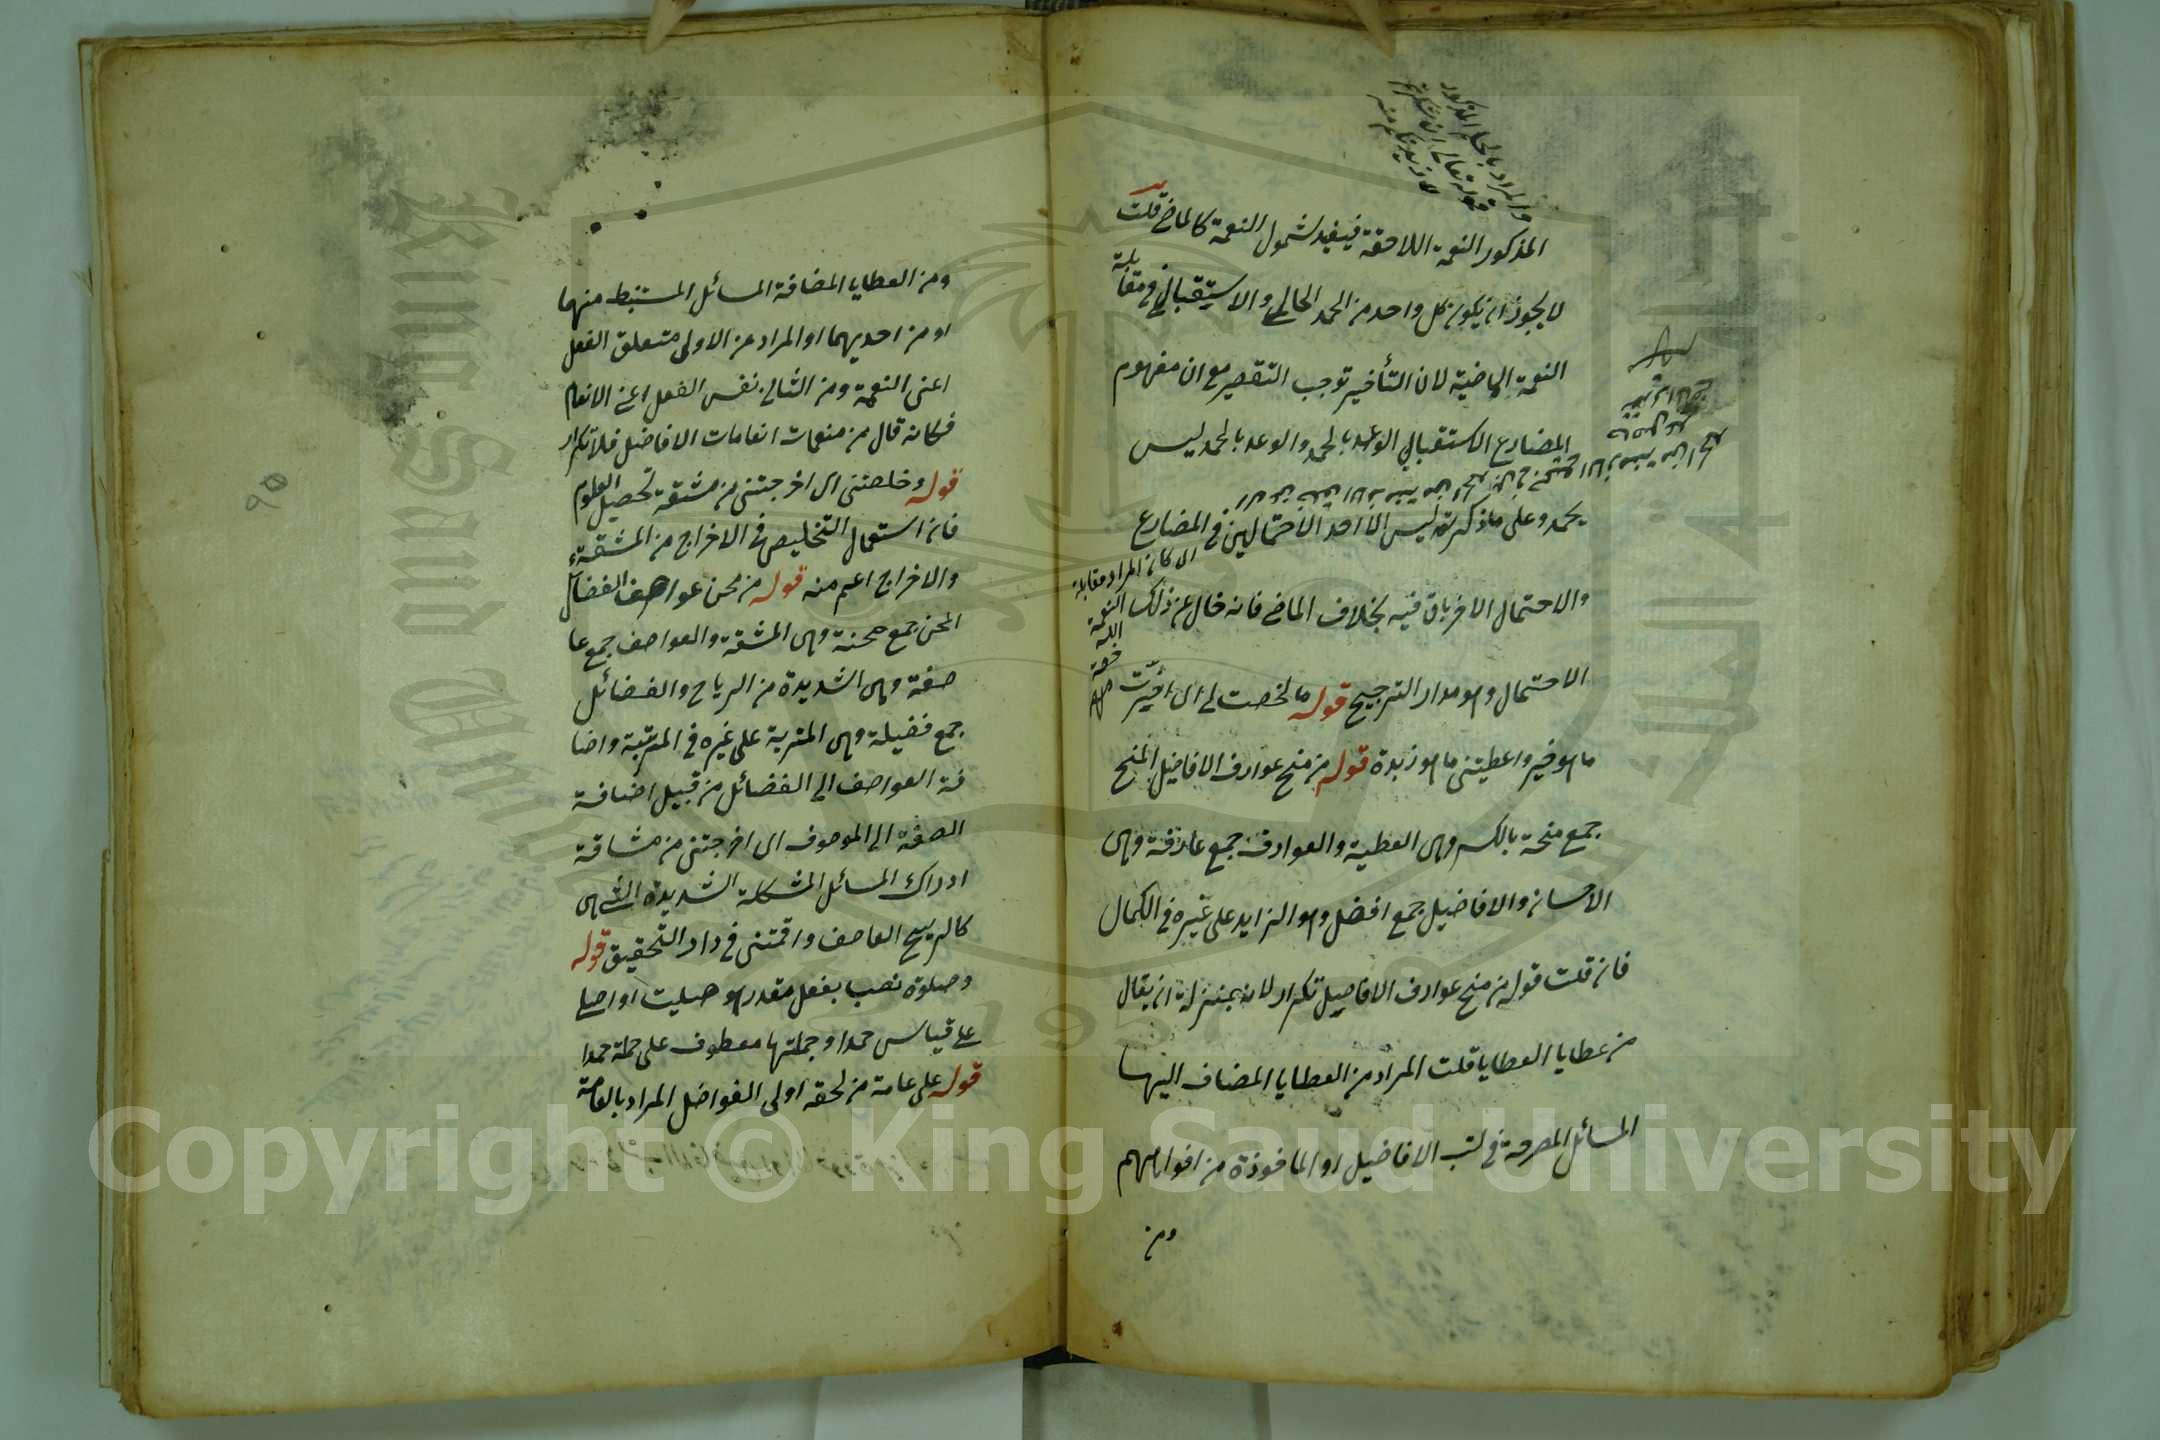 المذكور النعمة اللاحقة فيفيد شمول النعمة كالماضى قلت
لا يجوز ان يكون كل واحد من الحمد الحالى والاستقبالى فى مقابلة
النعمة الماضية لان التأخير توجب التقصير مع ان مفهوم
المضارع الاستقبالى الوعد بالحمد والوعد بالحمد ليس
بحمد وعلى ما ذكرته ليس الا احد الاحتمالين فى المضارع
والاحتمال الاخر باق فيه بخلاف الماضى فانه خال عن ذلك
الاحتمال وهو مدار الترجيح قوله ما لخصت لى اى اخترت
ما هو خير واعطيتنى ما هو زبدة قوله من منح عوارف الافاضيل المنح
جمع منحة بالكسر وهى العطية والعوارف جمع عارفة وهى
الاحسان والافاضيل جمع افضل وهو الزايد على غيره فى الكمال
فان قلت قوله من منح عوارف الافاضيل تكرار لانه بمنزلة ان يقال
من عطايا العطايا قلت المراد من العطايا المضاف اليها
المسائل المصرحة فى كتب الافاضيل او المأخوذة من افواههم
ومن
ومن العطايا المضافة المسائل المستنبط منها
او من احديهما او المراد من الاولى متعلق الفعل
اعنى النعمة ومن الثانى نفس الفعل اعنى الانعام
فكانه قال من منعمات انعامات الافاضل فلا تكرار
قوله وخلصتنى اى اخرجتنى من مشقة تحصيل العلوم
فان استعمال التخليص فى الاخراج من المشقة
والاخراج اعم منه قوله من محن عواصف الفضائل
المحن جمع محنة وهى المشقة والعواصف جمع عا
صفة وهى الشديدة من الرياح والفضائل
جمع فضيلة وهى المزية على غيره فى المرتبة واضا
فة العواصف الى الفضائل من قبيل اضافة
الصفة الى الموصوف اى اخرجتنى من مشاقة
ادراك المسائل المشكلة الشديدة التى هى
كالريح العاصف واقمتنى فى دار التحقيق قوله
وصلوة نصب بفعل مقدر هو صليت او اصلى
على قياس حمدا وجملتها معطوف على جملة حمدا
قوله على عامة من لحقه اولى الفواضل المراد بالعامة
٩٥
Copyright © King Saud University
King Saud University
1957